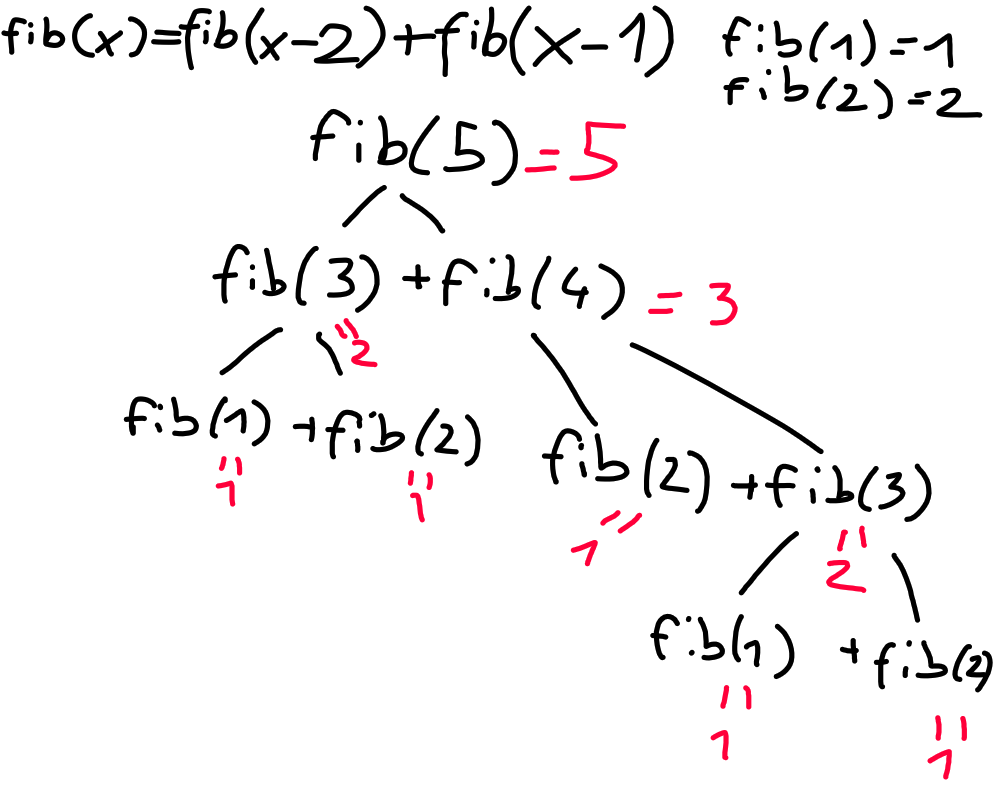 fib(x)=fib(x-2)+fib(x-1)
fib(1)=1
fib(2)=2
fib(5)=5
fib(3)+fib(4)=3
"2
fib(1)+fib(2)
" "
1 1
fib(2)+fib(3)
" "
1 2
fib(1)+fib(2)
" "
1 1